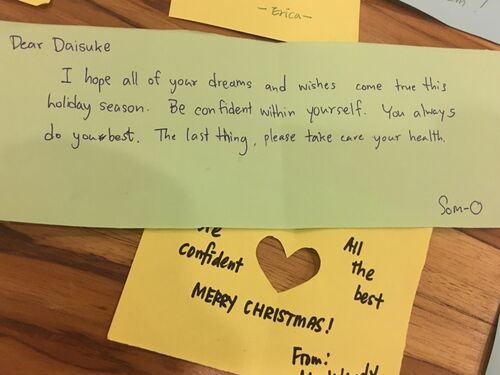 -Erica-
Dear Daisuke
I hope all of your dreams and wishes come true this
holiday season. Be confident within yourself. You always
do your best. The last thing, please take care your health.
Som-O
confident
All
the
best
MERRY CHRISTMAS!
From: